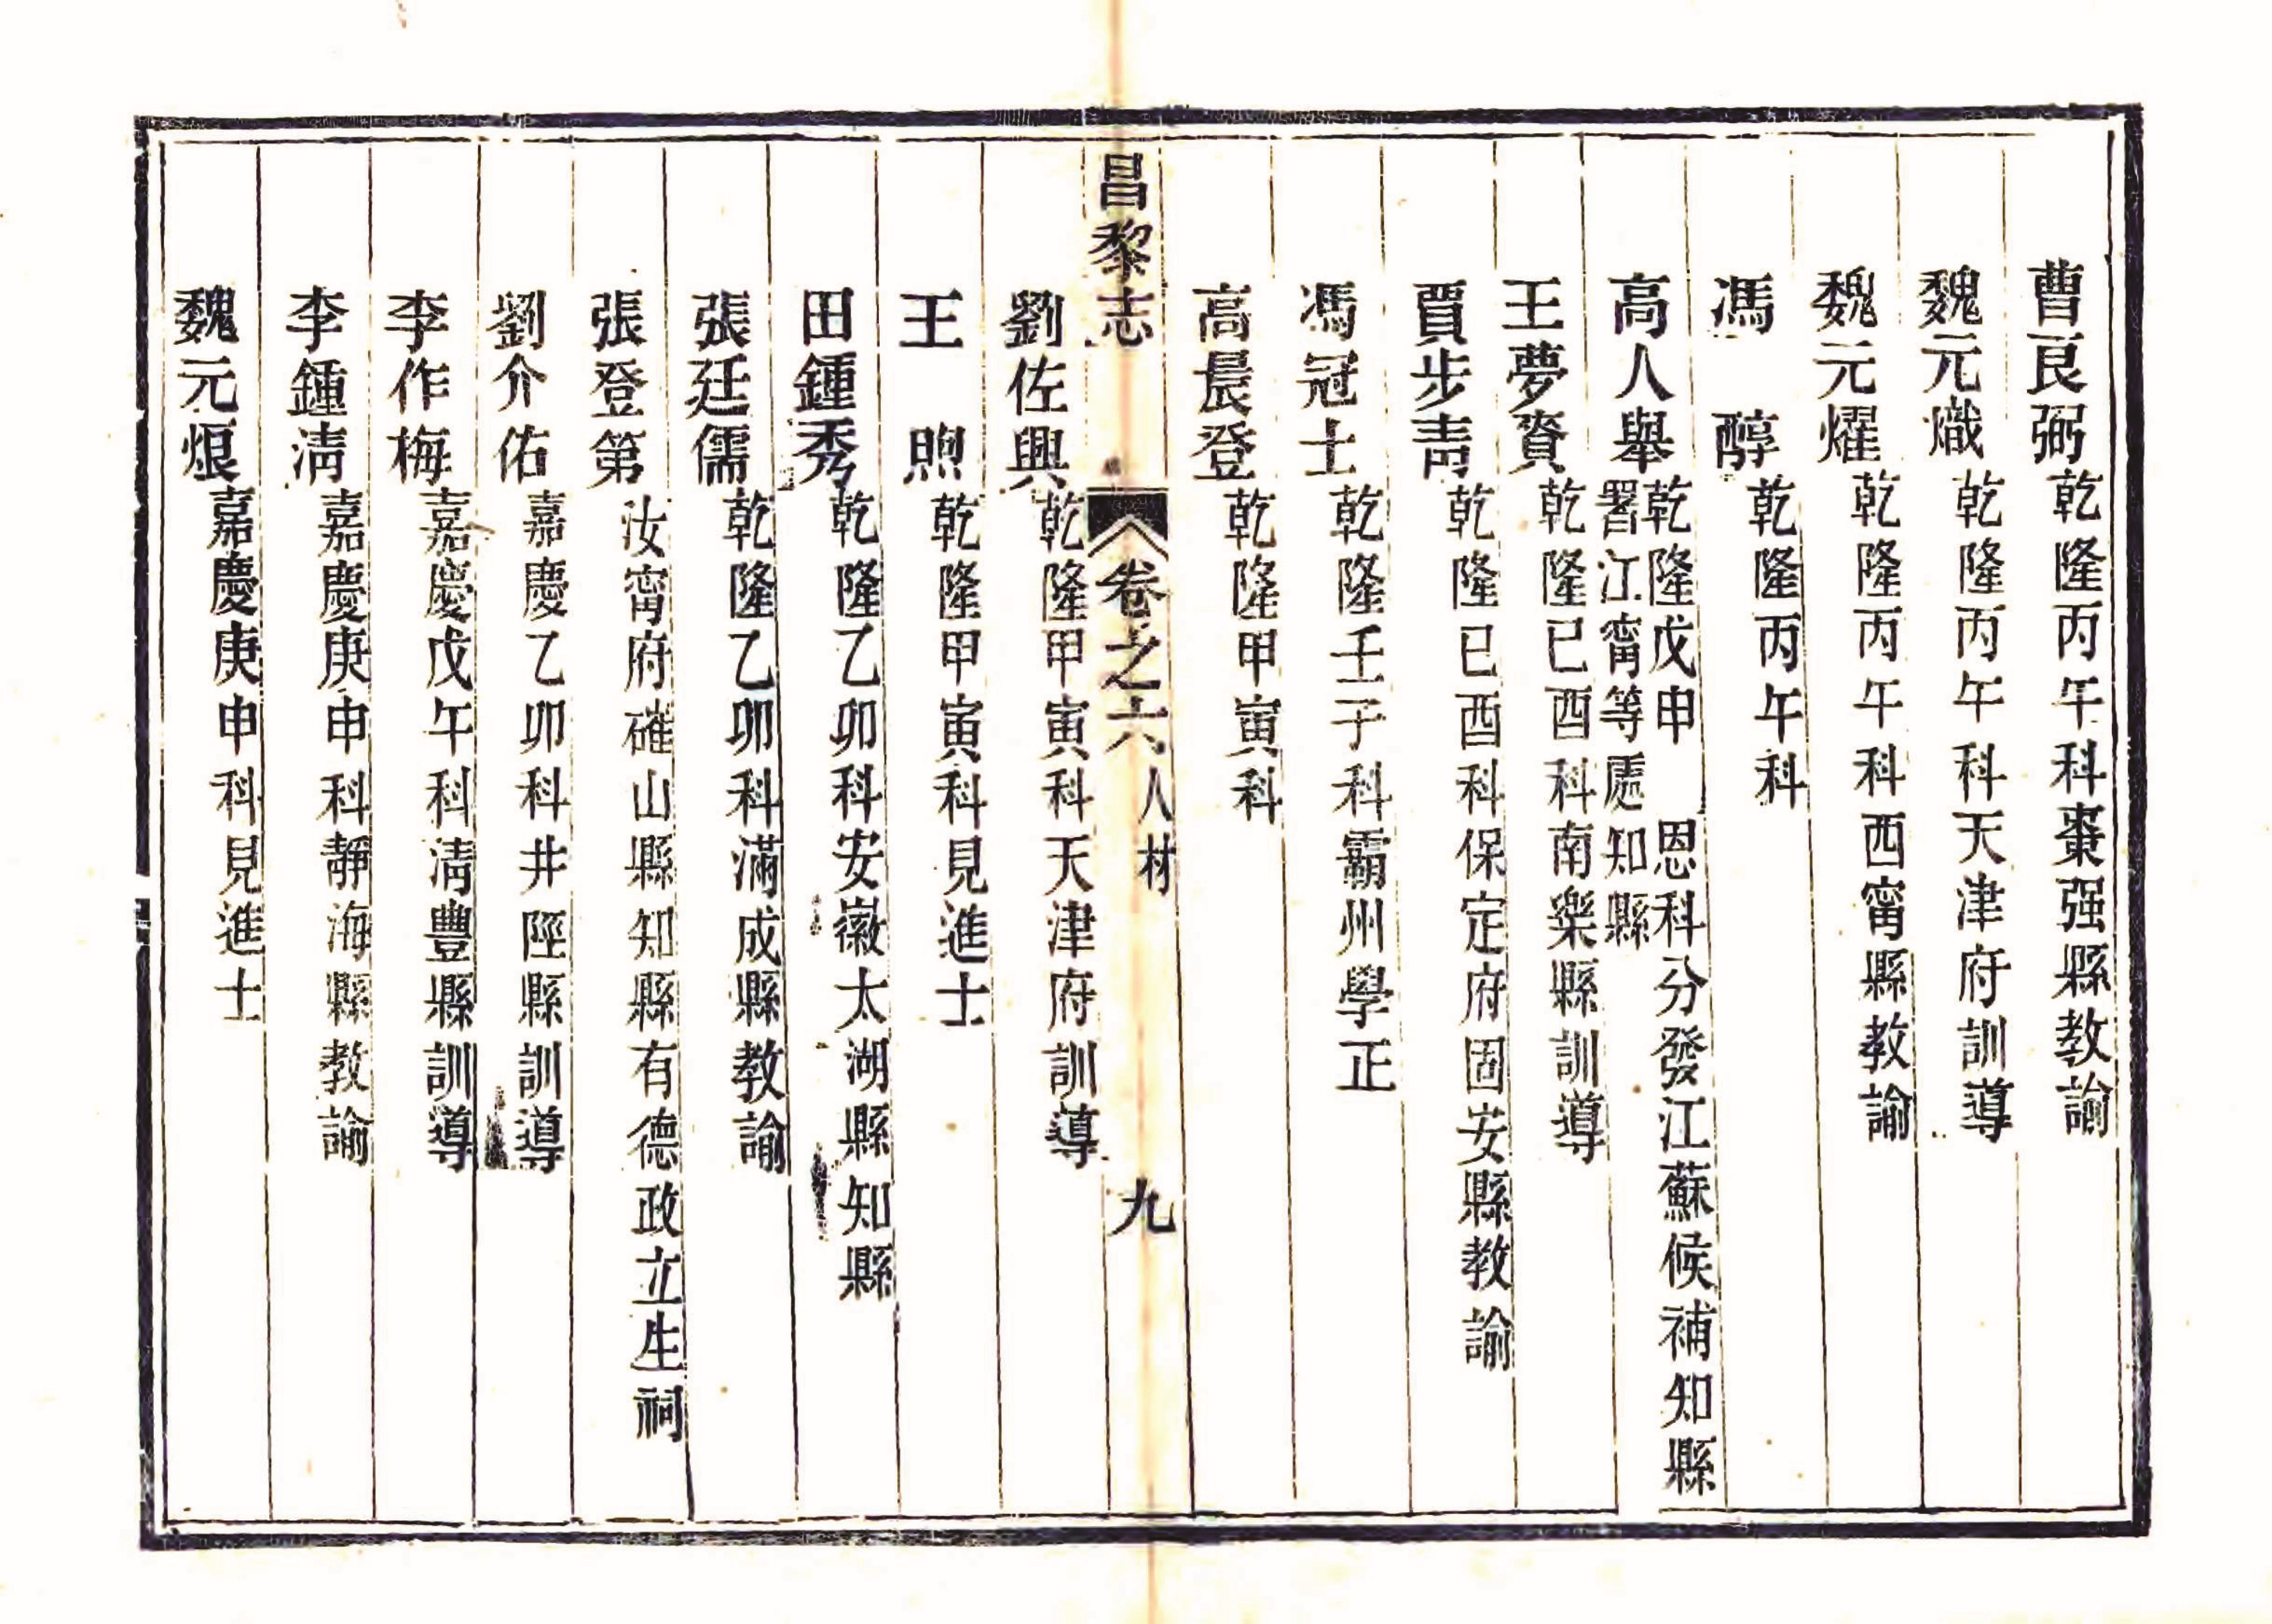 曹良弼乾隆丙午科棗强縣教諭
魏元熾乾隆丙午科天津府訓導
魏元燿乾隆丙午科西甯縣教諭
馮　醇乾隆丙午科
高人舉乾隆戊申　恩科分發江蘇候補知縣
署江甯等處知縣
王夢賚乾隆己酉科南樂縣訓導
賈步青乾隆己酉科保定府固安縣教諭
馮冠士乾隆壬子科霸州學正
高晨登乾隆甲寅科
昌黎志　卷之六　人材　九
劉佐興乾隆甲寅科天津府訓導
王　煦乾隆甲寅科見進士
田鍾秀乾隆乙卯科安徽太湖縣知縣
張廷儒乾隆乙卯科滿成縣教諭
張登第汝甯府確山縣知縣有德政立生祠
劉介佑嘉慶乙卯科井陘縣訓導
李作梅嘉慶戊午科清豐縣訓導
李鍾淸嘉慶庚申科靜海縣教諭
魏元烺嘉慶庚申科見進士